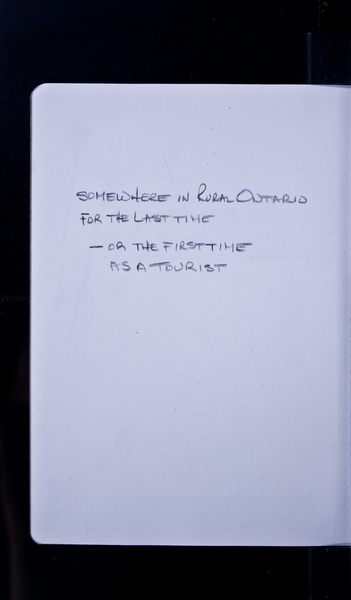 SOMEWHERE IN RURAL ONTARIO
FOR THE LAST TIME
— OR THE FIRST TIME
AS A TOURIST